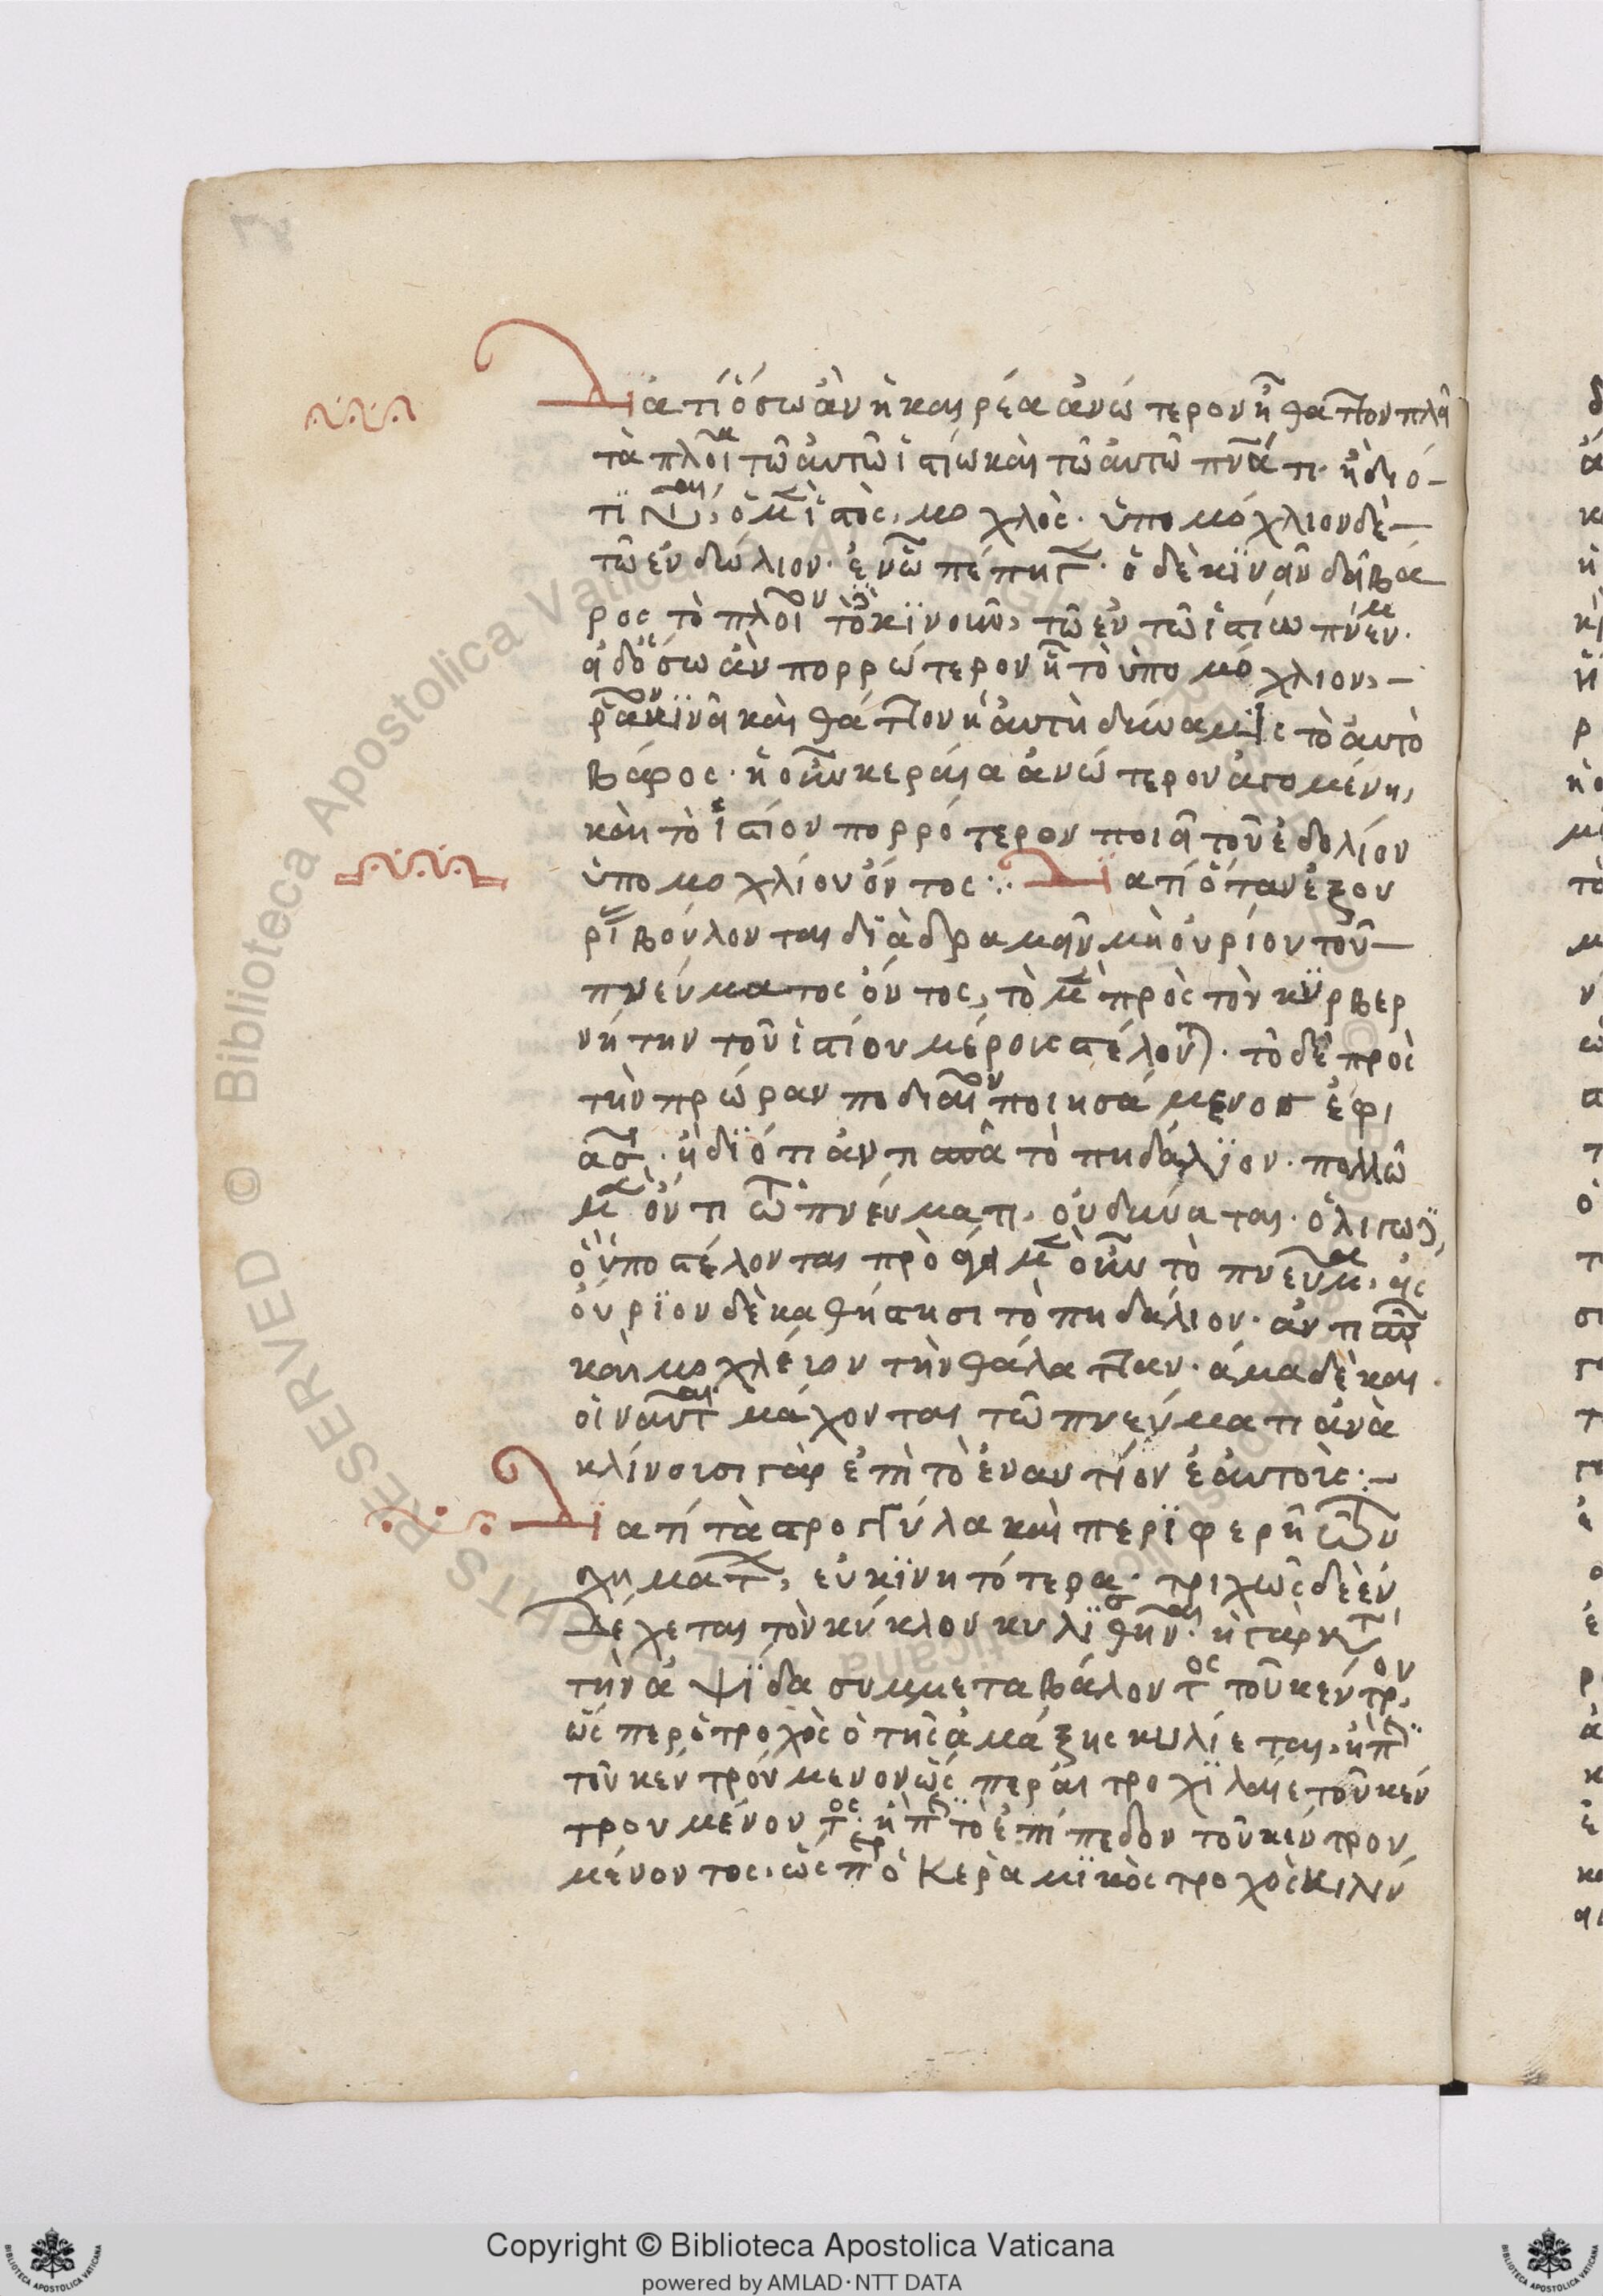 Διατί ὅσω ἂν ἡ καιρέα ἀνώτερον ἦ θᾶττον πλεῖ
τὰ πλοῖα τῶ αὐτῶ ἱστίω καὶ τῶ αὐτῶ πνάτι· ἢ διό-
τι ὁ μὲν ἱστὸς, μοχλὸς· ὑπομόχλιον δὲ
τὼ ἐνδώλιον· ἐν ὧ πέπηγε· ὃ δὲ κϊνεῖν δεῖ βά
ρος τὸ πλοῖον τὸ κϊνοῦν, τῶ ἐν τῶ ἱστίω πνεῦμα·
εἰ δ' ὅσω ἂν πορρώτερον ἦ τὸ ὑπομόχλιον,
ρᾶον κϊνεῖ καὶ θᾶττον ἡ αὐτὴ δύναμϊς τὸ αὐτὸ
βάρος· ἡ οὖν κεραία ἀνώτερον ἀγομένη,
καὶ τὸ ἱστίον πορρότερον ποιεῖ τοῦ ἑδολίου
ὑπομοχλίου ὄντος :· Διατί ὅταν ἐξου
ρίας βούλονται διὰδραμεῖν μὴ οὐρίου τοῦ
πνεύματος ὄντος, τὸ μὲν πρὸς τὸν κϋρβερ
νήτην τοῦ ἱστίου μέρος στέλονται· τὸ δὲ πρὸς
τὴν πρώραν ποδιαῖον ποιησάμενος ἐφι
ασι· ἢ διότι ἀντισπᾶ τὸ πηδάλϊον· πολλῶ
μὲν ὄντι τῶ πνεύματι, οὐ δύναται· ὀλίγω δὲ,
ὃ ὑποστέλονται προάγει μὲν οὖν τὸ πνεῦμα, εἰς
οὔρϊον δὲ καθήστησι τὸ πηδάλιον· ἀντισπῶν
καὶ μοχλέιον τὴν θάλατταν· ἅμα δὲ καὶ
οἱ ναῦται μάχονται τῶ πνεύματι ἀνὰ
κλίνσισι γὰρ ἐπὶ τὸ ἐναντίον ἑαυτοὶς :-
Διατί τὰ στρογγύλα καὶ περϊφερῆ τῶν
σχημάτων, εὐκϊνητότερα· τριχῶς δὲ ἐν
δέχεται τὸν κύκλον κυλϊσθῆναι· ἢ γὰρ κατὰ
τὴν ἁψϊδα συμμεταβάλοντος τοῦ κέντρου,
ὥς περ ὁ τροχὸς ὁ τῆς ἁμάξης κυλίεται, ἢ περὶ
τοῦ κεντρόυμενον ὥς περ αἱ τροχϊλαίε τοῦ κέν
τρου μένοντος· ἢ παρὰ τὸ ἐπίπεδον τοῦ κέντρου
μένοντος, ὡς περ ὁ Κεραμϊκὸς τροχὸς κιλίν